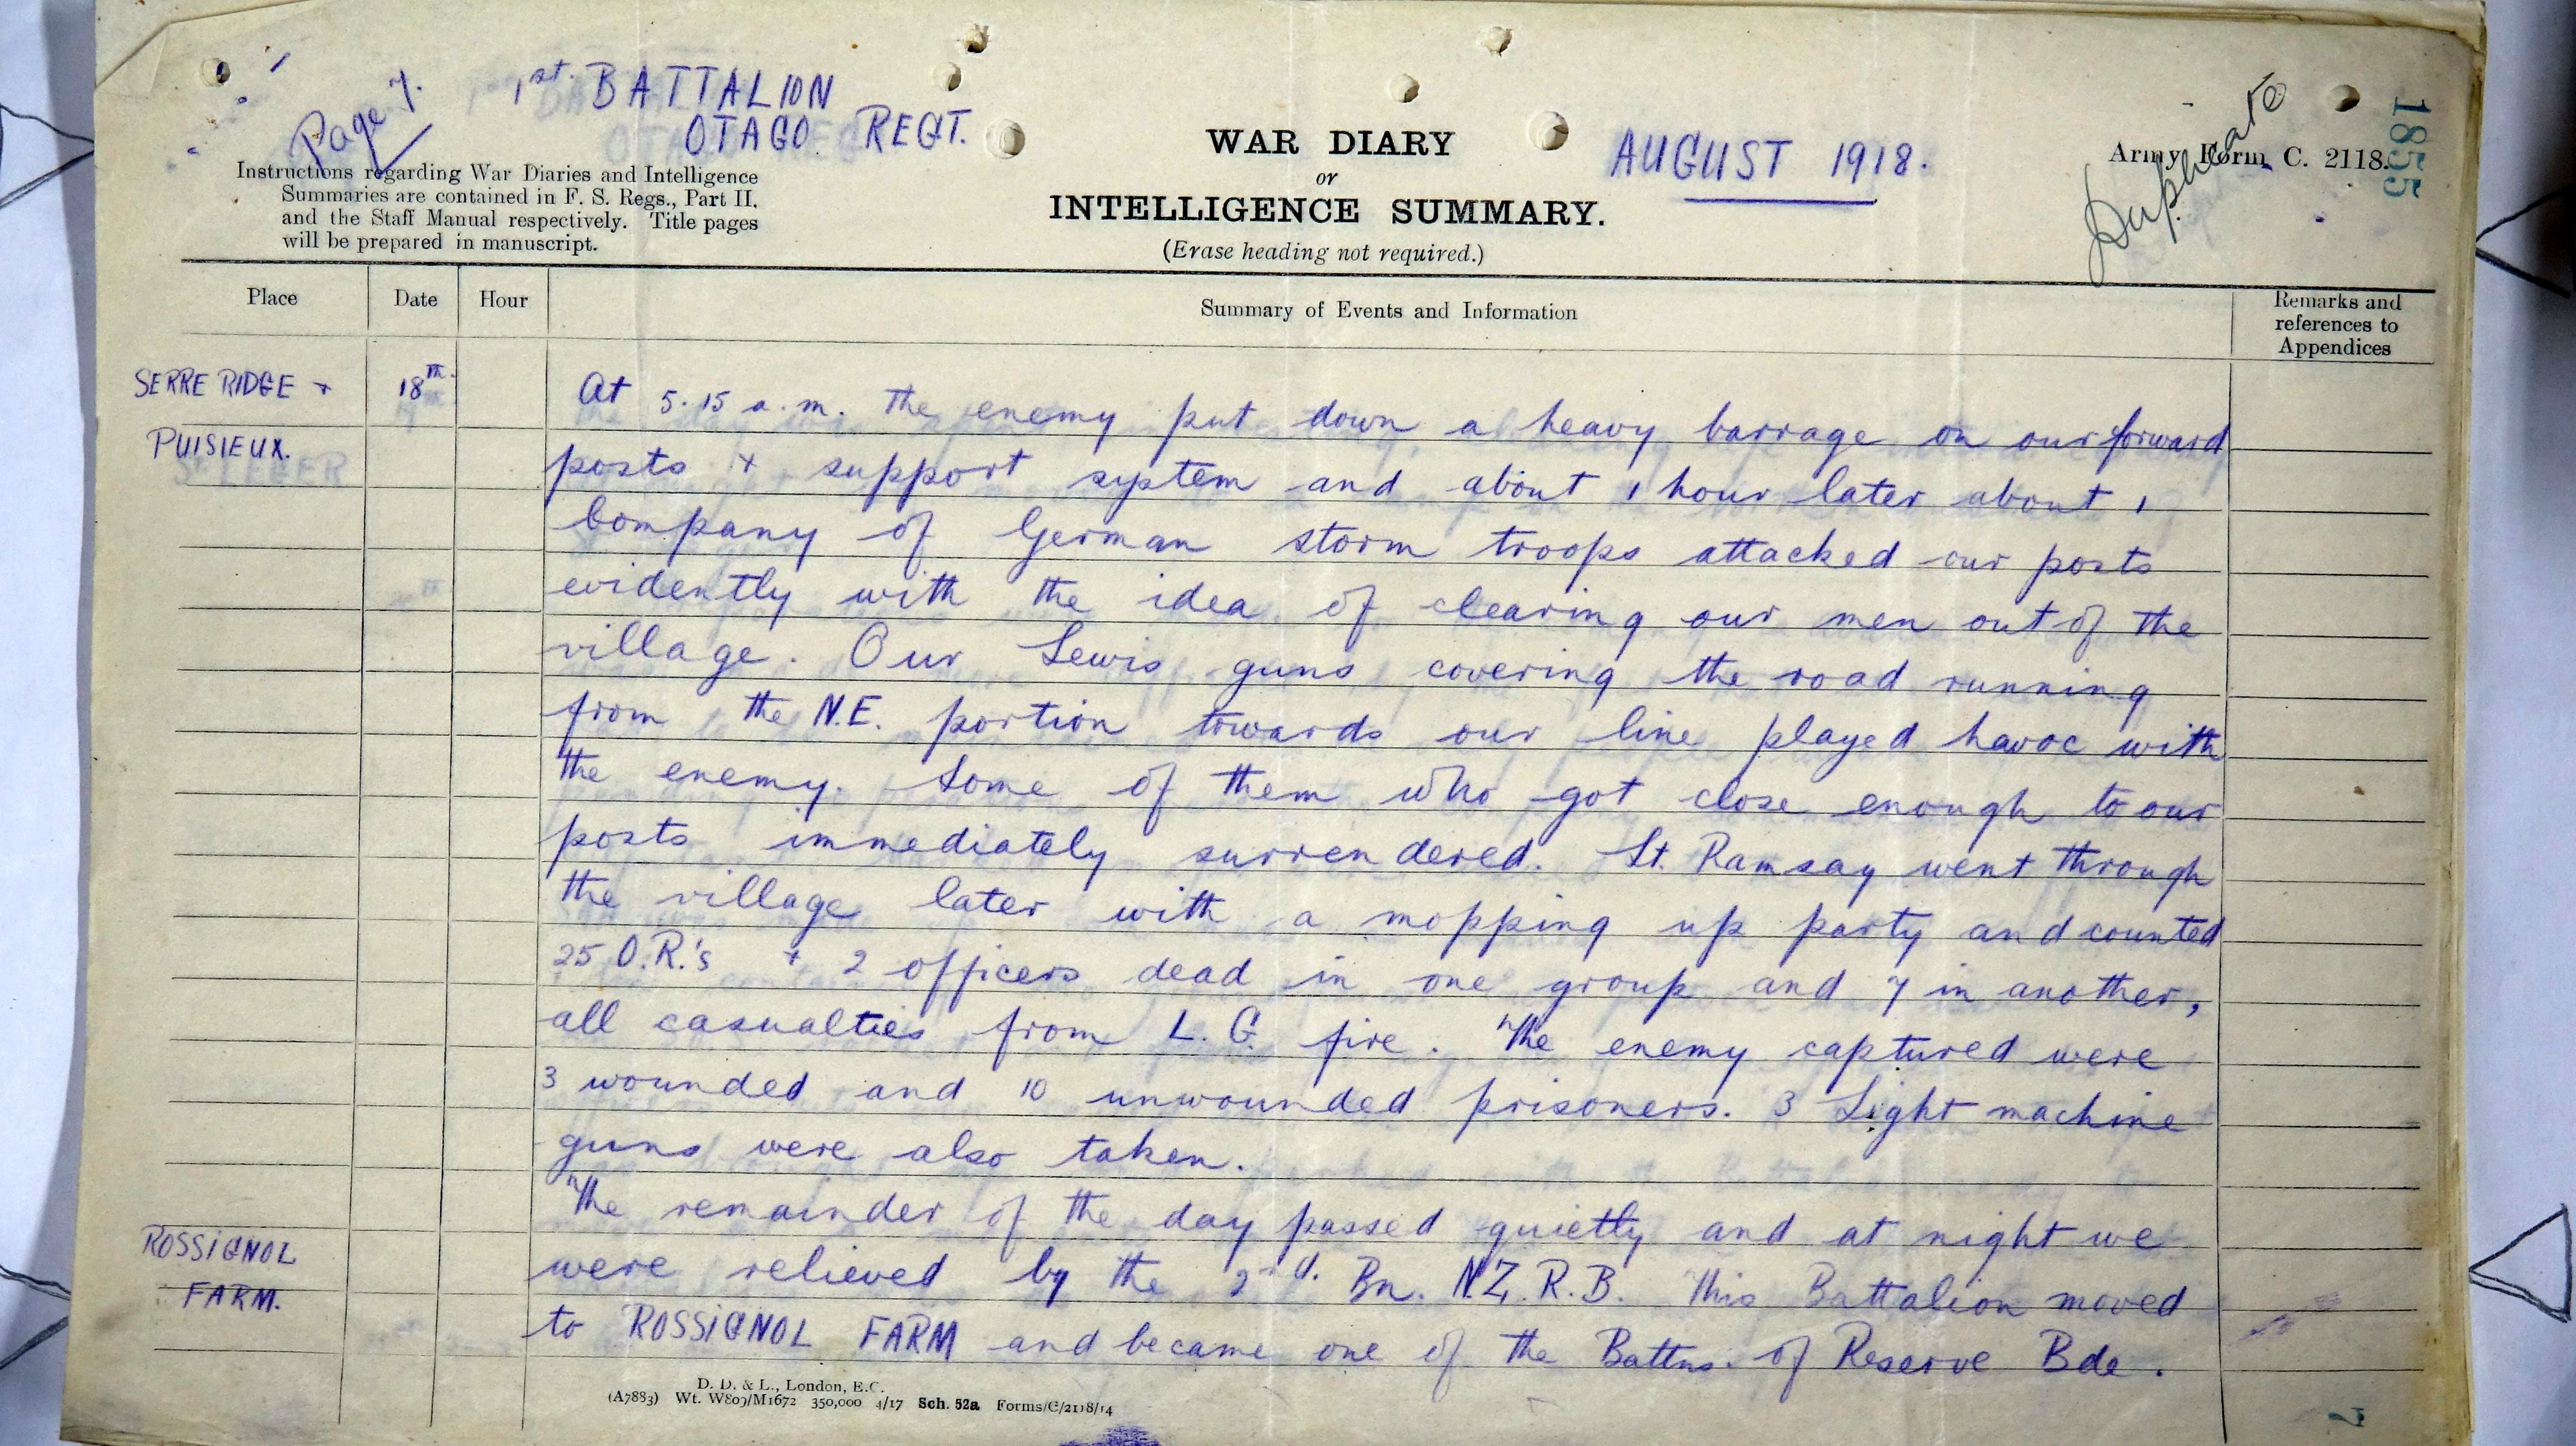 Page 7.
1st. BATTALION
OTAGO REGT.
WAR DIARY
or
INTELLIGENCE SUMMARY.
(Erase heading not required.)
AUGUST 1918.
Army Form C. 2118.
Duplicate
1855
Instructions regarding War Diaries and Intelligence
Summaries are contained in F. S. Regs., Part II.
and the Staff Manual respectively. Title pages
will be prepared in manuscript.
Place Date Hour Summary of Events and Information Remarks and
references to
Appendices
SERRE RIDGE + 18th. At 5.15 a.m. the enemy put down a heavy barrage on our forward
PUISIEUX. posts + support system and about 1 hour later about 1
Company of German storm troops attacked our posts
evidently with the idea of clearing our men out of the
village. Our Lewis guns covering the road running
from the N.E. portion towards our line played havoc with
the enemy. Some of them who got close enough to our
posts immediately surrendered. Lt. Ramsay went through
the village later with a mopping up party and counted
25 O.R.'s + 2 officers dead in one group and 7 in another,
all casualties from L.G. fire. The enemy captured were
3 wounded and 10 unwounded prisoners. 3 Light machine
guns were also taken.
The remainder of the day passed quietly and at night we
ROSSIGNOL were relieved by the 2nd. Bn. N.Z.R.B. This Battalion moved
FARM. to ROSSIGNOL FARM and became one of the Battns. of Reserve Bde.
D. D. & L., London, E.C.
(A7883) Wt. W809/M1672 350,000 4/17 Sch. 52a Forms/C/2118/14
7